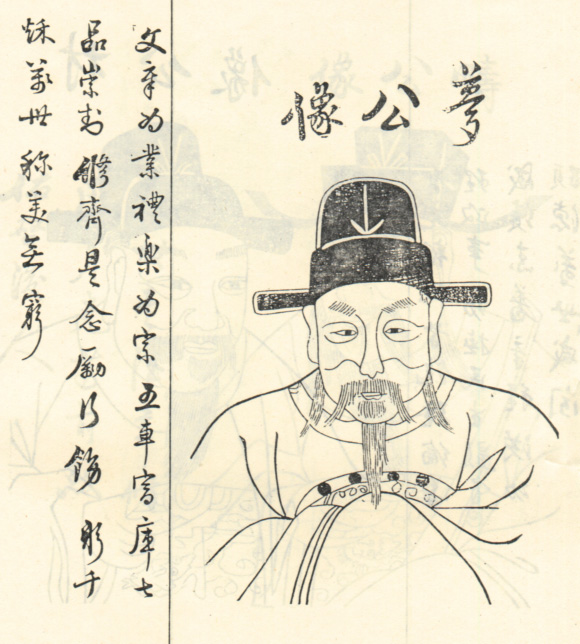 夢公像
文章为業禮樂为宗五車富庫七
品崇封脩齊是念勵行飭躬千
秋萬世称美無窮